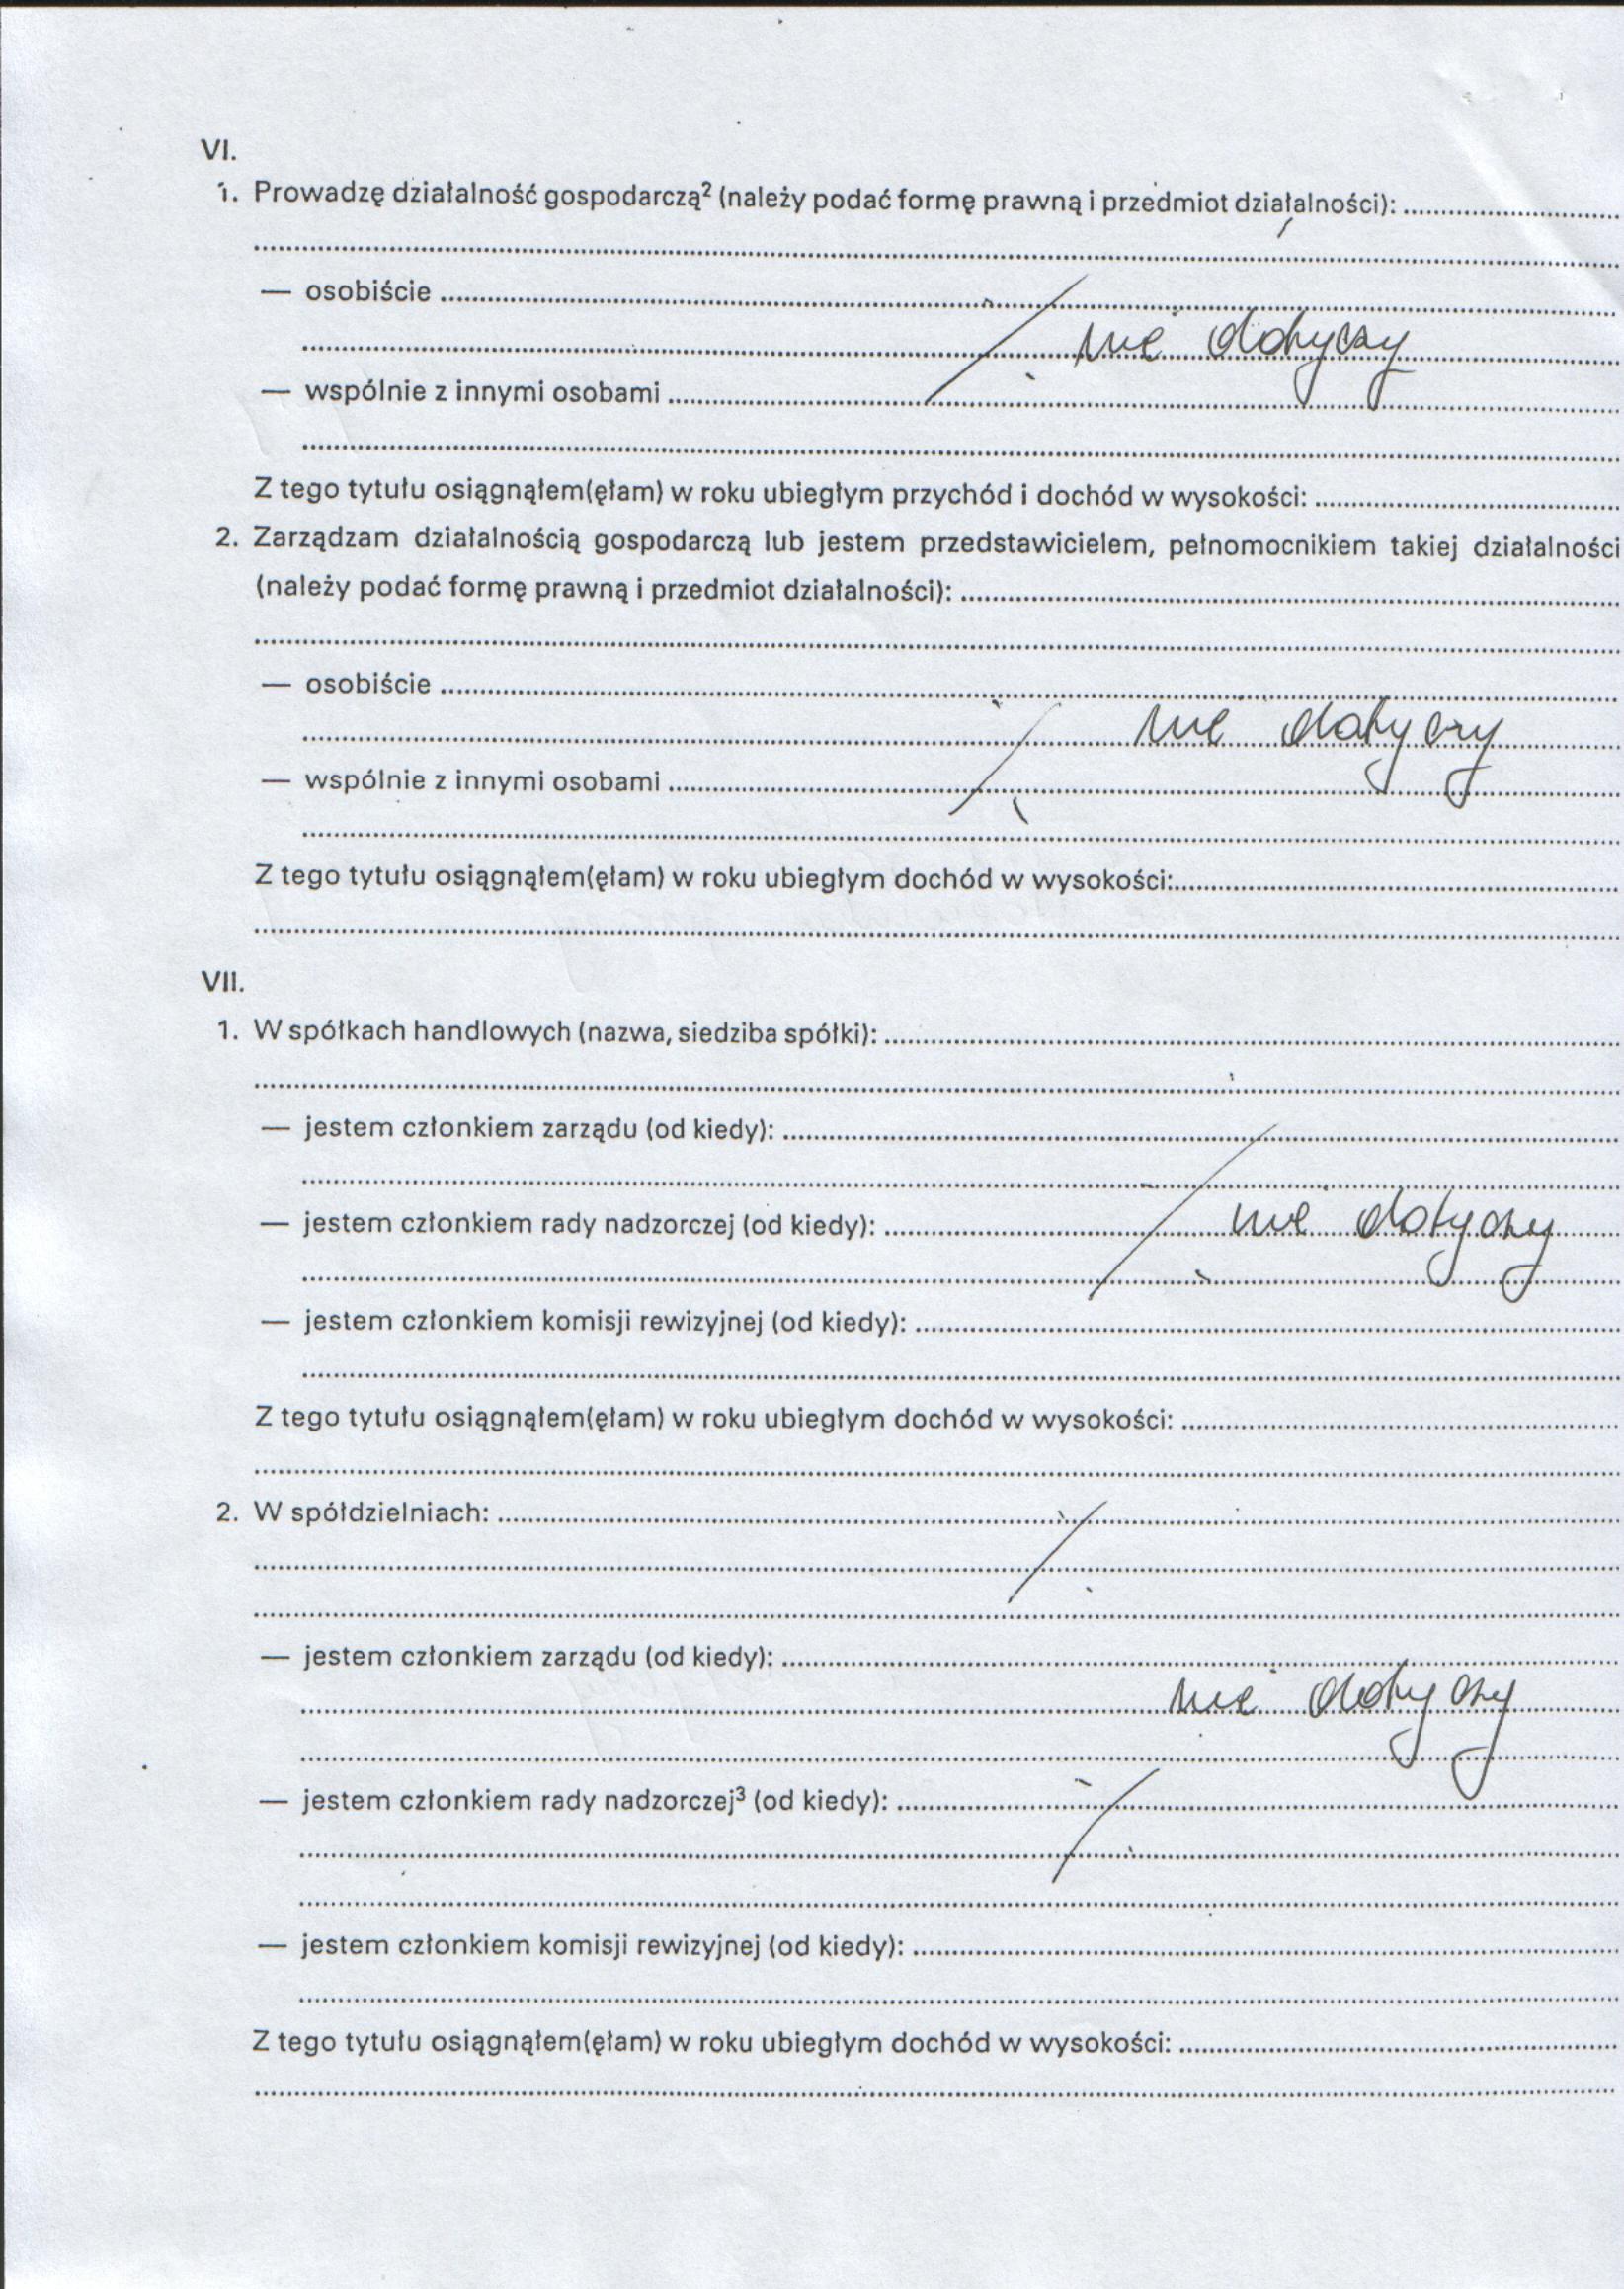 VI.
1. Prowadzę działalność gospodarczą² (należy podać formę prawną i przedmiot działalności):
— osobiście
nie dotyczy
— wspólnie z innymi osobami
Z tego tytułu osiągnąłem(ęłam) w roku ubiegłym przychód i dochód w wysokości:
2. Zarządzam działalnością gospodarczą lub jestem przedstawicielem, pełnomocnikiem takiej działalności
(należy podać formę prawną i przedmiot działalności):
— osobiście
nie dotyczy
— wspólnie z innymi osobami
Z tego tytułu osiągnąłem(ęłam) w roku ubiegłym dochód w wysokości:
VII.
1. W spółkach handlowych (nazwa, siedziba spółki):
— jestem członkiem zarządu (od kiedy):
— jestem członkiem rady nadzorczej (od kiedy): nie dotyczy
— jestem członkiem komisji rewizyjnej (od kiedy):
Z tego tytułu osiągnąłem(ęłam) w roku ubiegłym dochód w wysokości:
2. W spółdzielniach:
— jestem członkiem zarządu (od kiedy):
nie dotyczy
— jestem członkiem rady nadzorczej³ (od kiedy):
— jestem członkiem komisji rewizyjnej (od kiedy):
Z tego tytułu osiągnąłem(ęłam) w roku ubiegłym dochód w wysokości: